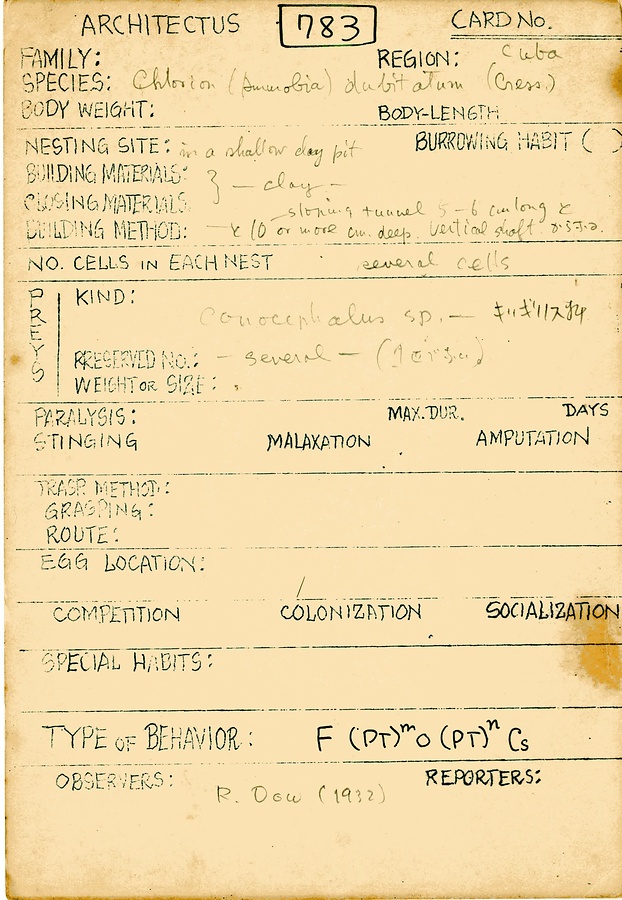 ARCHITECTUS 783 CARD NO.
FAMILY: REGION: Cuba
SPECIES: Chlorion (Ammobia) dubitatum (Cress.)
BODY WEIGHT: BODY-LENGTH
NESTING SITE: in a shallow clay pit BURROWING HABIT ( )
BUILDING MATERIALS: } — clay —
CLOSING MATERIALS.
BUILDING METHOD: — sloping tunnel 5-6 cm long &
x 10 or more cm. deep. Vertical shaft
NO. CELLS IN EACH NEST several cells
PREYS
KIND:
Conocephalus sp. — キリギリス科
PRESERVED NO.: — several —
WEIGHT OR SIZE:
PARALYSIS: MAX. DUR. DAYS
STINGING MALAXATION AMPUTATION
TRASP. METHOD:
GRASPING:
ROUTE:
EGG LOCATION:
COMPETITION COLONIZATION SOCIALIZATION
SPECIAL HABITS:
TYPE OF BEHAVIOR: F (PT)ᵐ O (PT)ⁿ Cs
OBSERVERS: REPORTERS:
R. Dow (1932)